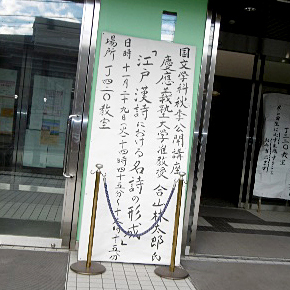 国文学科秋季公開講座
慶應義塾大学准教授 合山林太郎氏
「江戸漢詩における名詩の形成」
日時 十一月二十九日(火)十四時四十五分〜十六時十五分
場所 丁四二〇教室